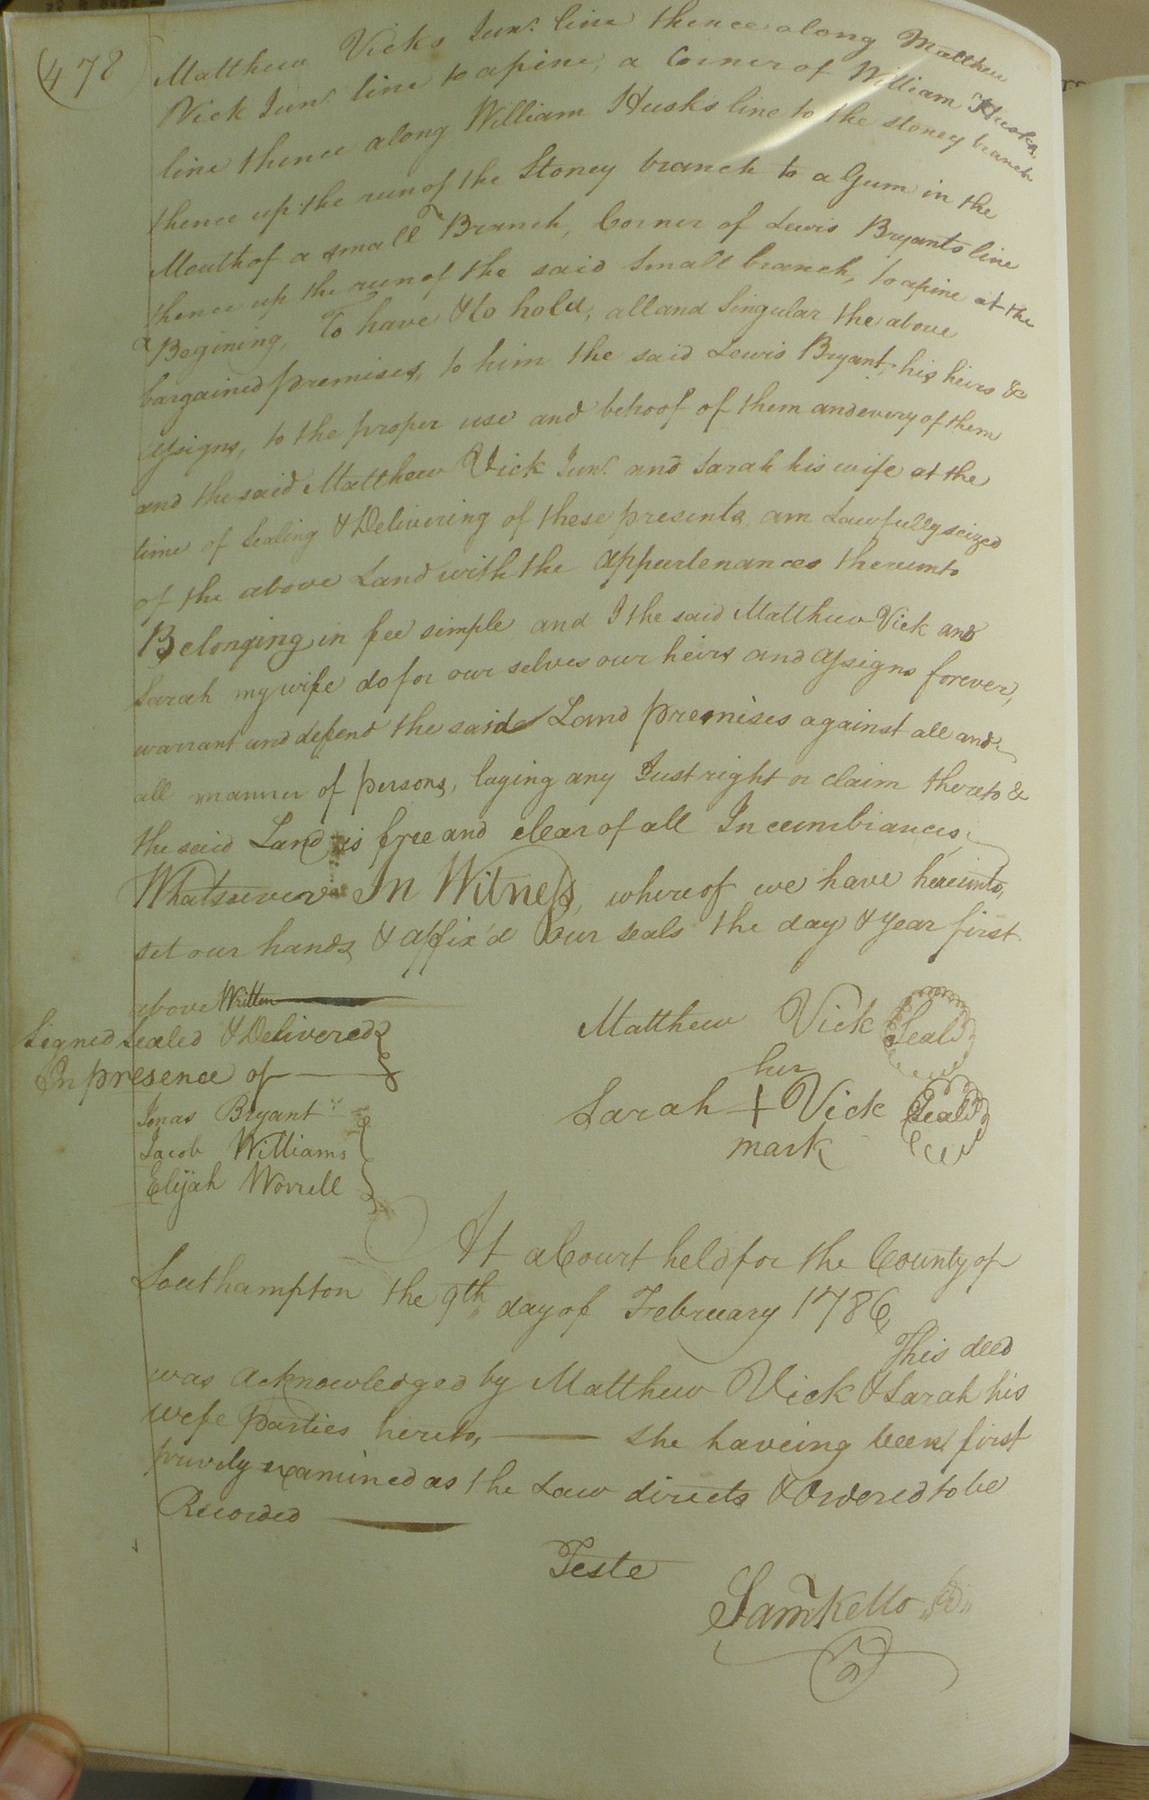 (478
Matthew Vicks Junr. line thence along Matthew
Vick Junr. line to a pine, a Corner of William Husks
line thence along William Husks line to the stoney branch
thence up the run of the Stoney branch to a Gum in the
Mouth of a small Branch, Corner of Lewis Bryants line
thence up the run of the said Small branch, to a pine at the
Begining, To have & to hold, all and Singular the above
bargained premises, to him the said Lewis Bryant, his heirs &
assigns, to the proper use and behoof of them and every of them
and the said Matthew Vick Junr. and Sarah his wife at the
time of Sealing & Delivering of these presents am Lawfully seized
of the above Land with the appurtenances thereunto
Belonging in fee simple and I the said Matthew Vick and
Sarah my wife do for our selves our heirs and assigns forever,
warrant and defend the said Land premises against all and
all manner of persons, laying any Just right or claim thereto &
the said Land is free and clear of all Incumbrances
Whatsoever In Witness, whereof we have hereunto,
set our hands & affix'd our seals the day & year first
above Written
Signed Sealed & Delivered
In presence of
Jonas Bryant
Jacob Williams
Elijah Worrell
Matthew Vick Seal
her
Sarah + Vick Seal
mark
At a Court held for the County of
Southampton the 9th day of February 1786,
This deed
was acknowledged by Matthew Vick & Sarah his
wife parties hereto, she haveing been first
privily examined as the Law directs & Ordered to be
Recorded
Teste
Saml Kello